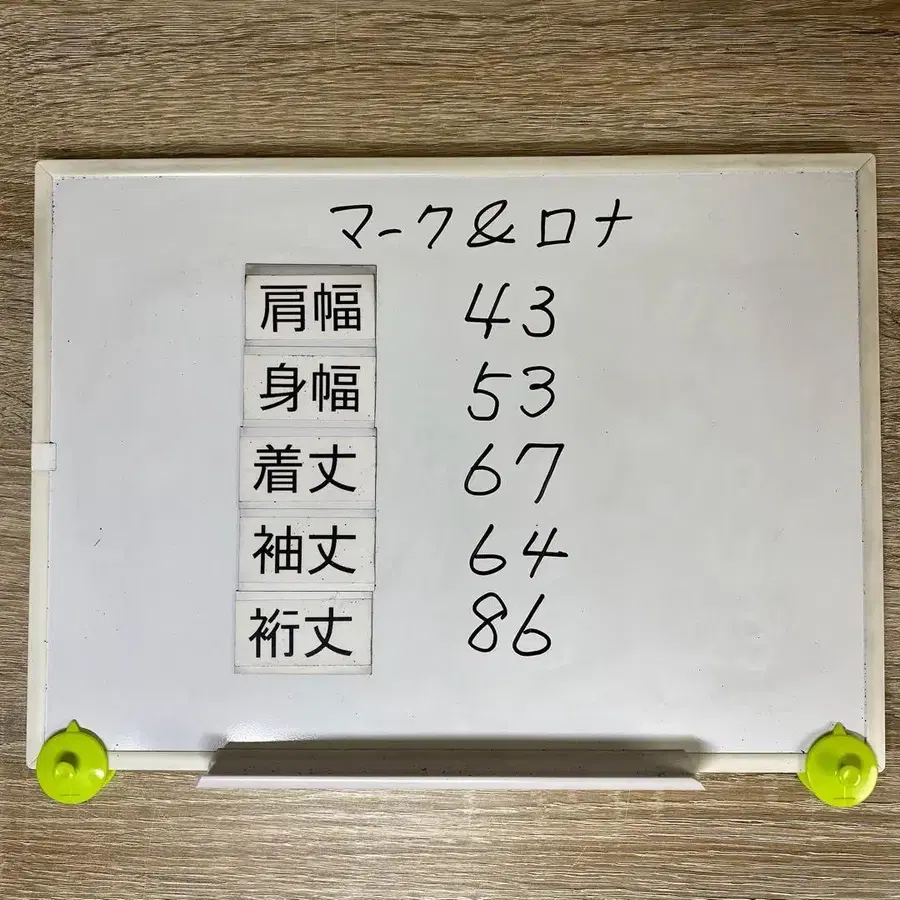 マーク&ロナ
肩幅 43
身幅 53
着丈 67
袖丈 64
裄丈 86